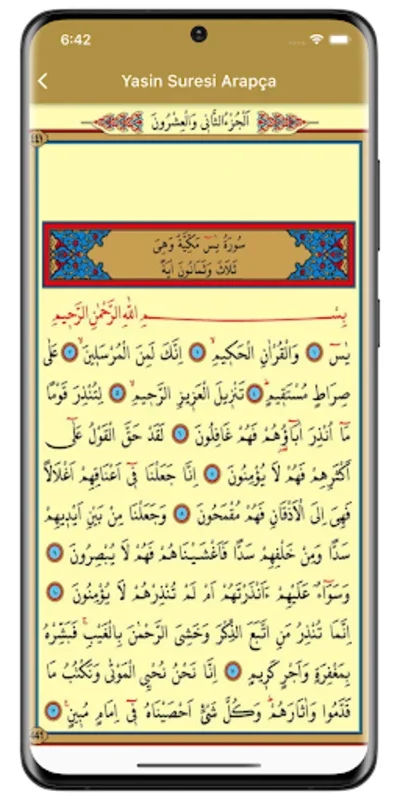 6:42
Yasin Suresi Arapça
اَلْجُزْءُ الثَّانِي وَالْعِشْرُونَ
سُورَةُ يٰسٓ مَكِّيَّةٌ وَهِيَ
ثَلَاثٌ وَثَمَانُونَ اٰيَةً
بِسْمِ اللّٰهِ الرَّحْمٰنِ الرَّحِيمِ
يٰسٓ ﴿١﴾ وَالْقُرْاٰنِ الْحَكِيمِۙ ﴿٢﴾ اِنَّكَ لَمِنَ الْمُرْسَلِينَۙ ﴿٣﴾ عَلٰى
صِرَاطٍ مُسْتَقِيمٍۜ ﴿٤﴾ تَنْزِيلَ الْعَزِيزِ الرَّحِيمِۙ ﴿٥﴾ لِتُنْذِرَ قَوْمًا
مَٓا اُنْذِرَ اٰبَٓاؤُ۬هُمْ فَهُمْ غَافِلُونَ ﴿٦﴾ لَقَدْ حَقَّ الْقَوْلُ عَلٰٓى
اَكْثَرِهِمْ فَهُمْ لَا يُؤْمِنُونَ ﴿٧﴾ اِنَّا جَعَلْنَا فِٓي اَعْنَاقِهِمْ اَغْلَالًا
فَهِيَ اِلَى الْاَذْقَانِ فَهُمْ مُقْمَحُونَ ﴿٨﴾ وَجَعَلْنَا مِنْ بَيْنِ اَيْدِيهِمْ
سَدًّا وَمِنْ خَلْفِهِمْ سَدًّا فَاَغْشَيْنَاهُمْ فَهُمْ لَا يُبْصِرُونَ ﴿٩﴾
وَسَوَٓاءٌ عَلَيْهِمْ ءَاَنْذَرْتَهُمْ اَمْ لَمْ تُنْذِرْهُمْ لَا يُؤْمِنُونَ ﴿١٠﴾
اِنَّمَا تُنْذِرُ مَنِ اتَّبَعَ الذِّكْرَ وَخَشِيَ الرَّحْمٰنَ بِالْغَيْبِۚ فَبَشِّرْهُ
بِمَغْفِرَةٍ وَاَجْرٍ كَرِيمٍ ﴿١١﴾ اِنَّا نَحْنُ نُحْيِ الْمَوْتٰى وَنَكْتُبُ مَا
قَدَّمُوا وَاٰثَارَهُمْۜ وَكُلَّ شَيْءٍ اَحْصَيْنَاهُ فِٓي اِمَامٍ مُبِينٍ۟ ﴿١٢﴾